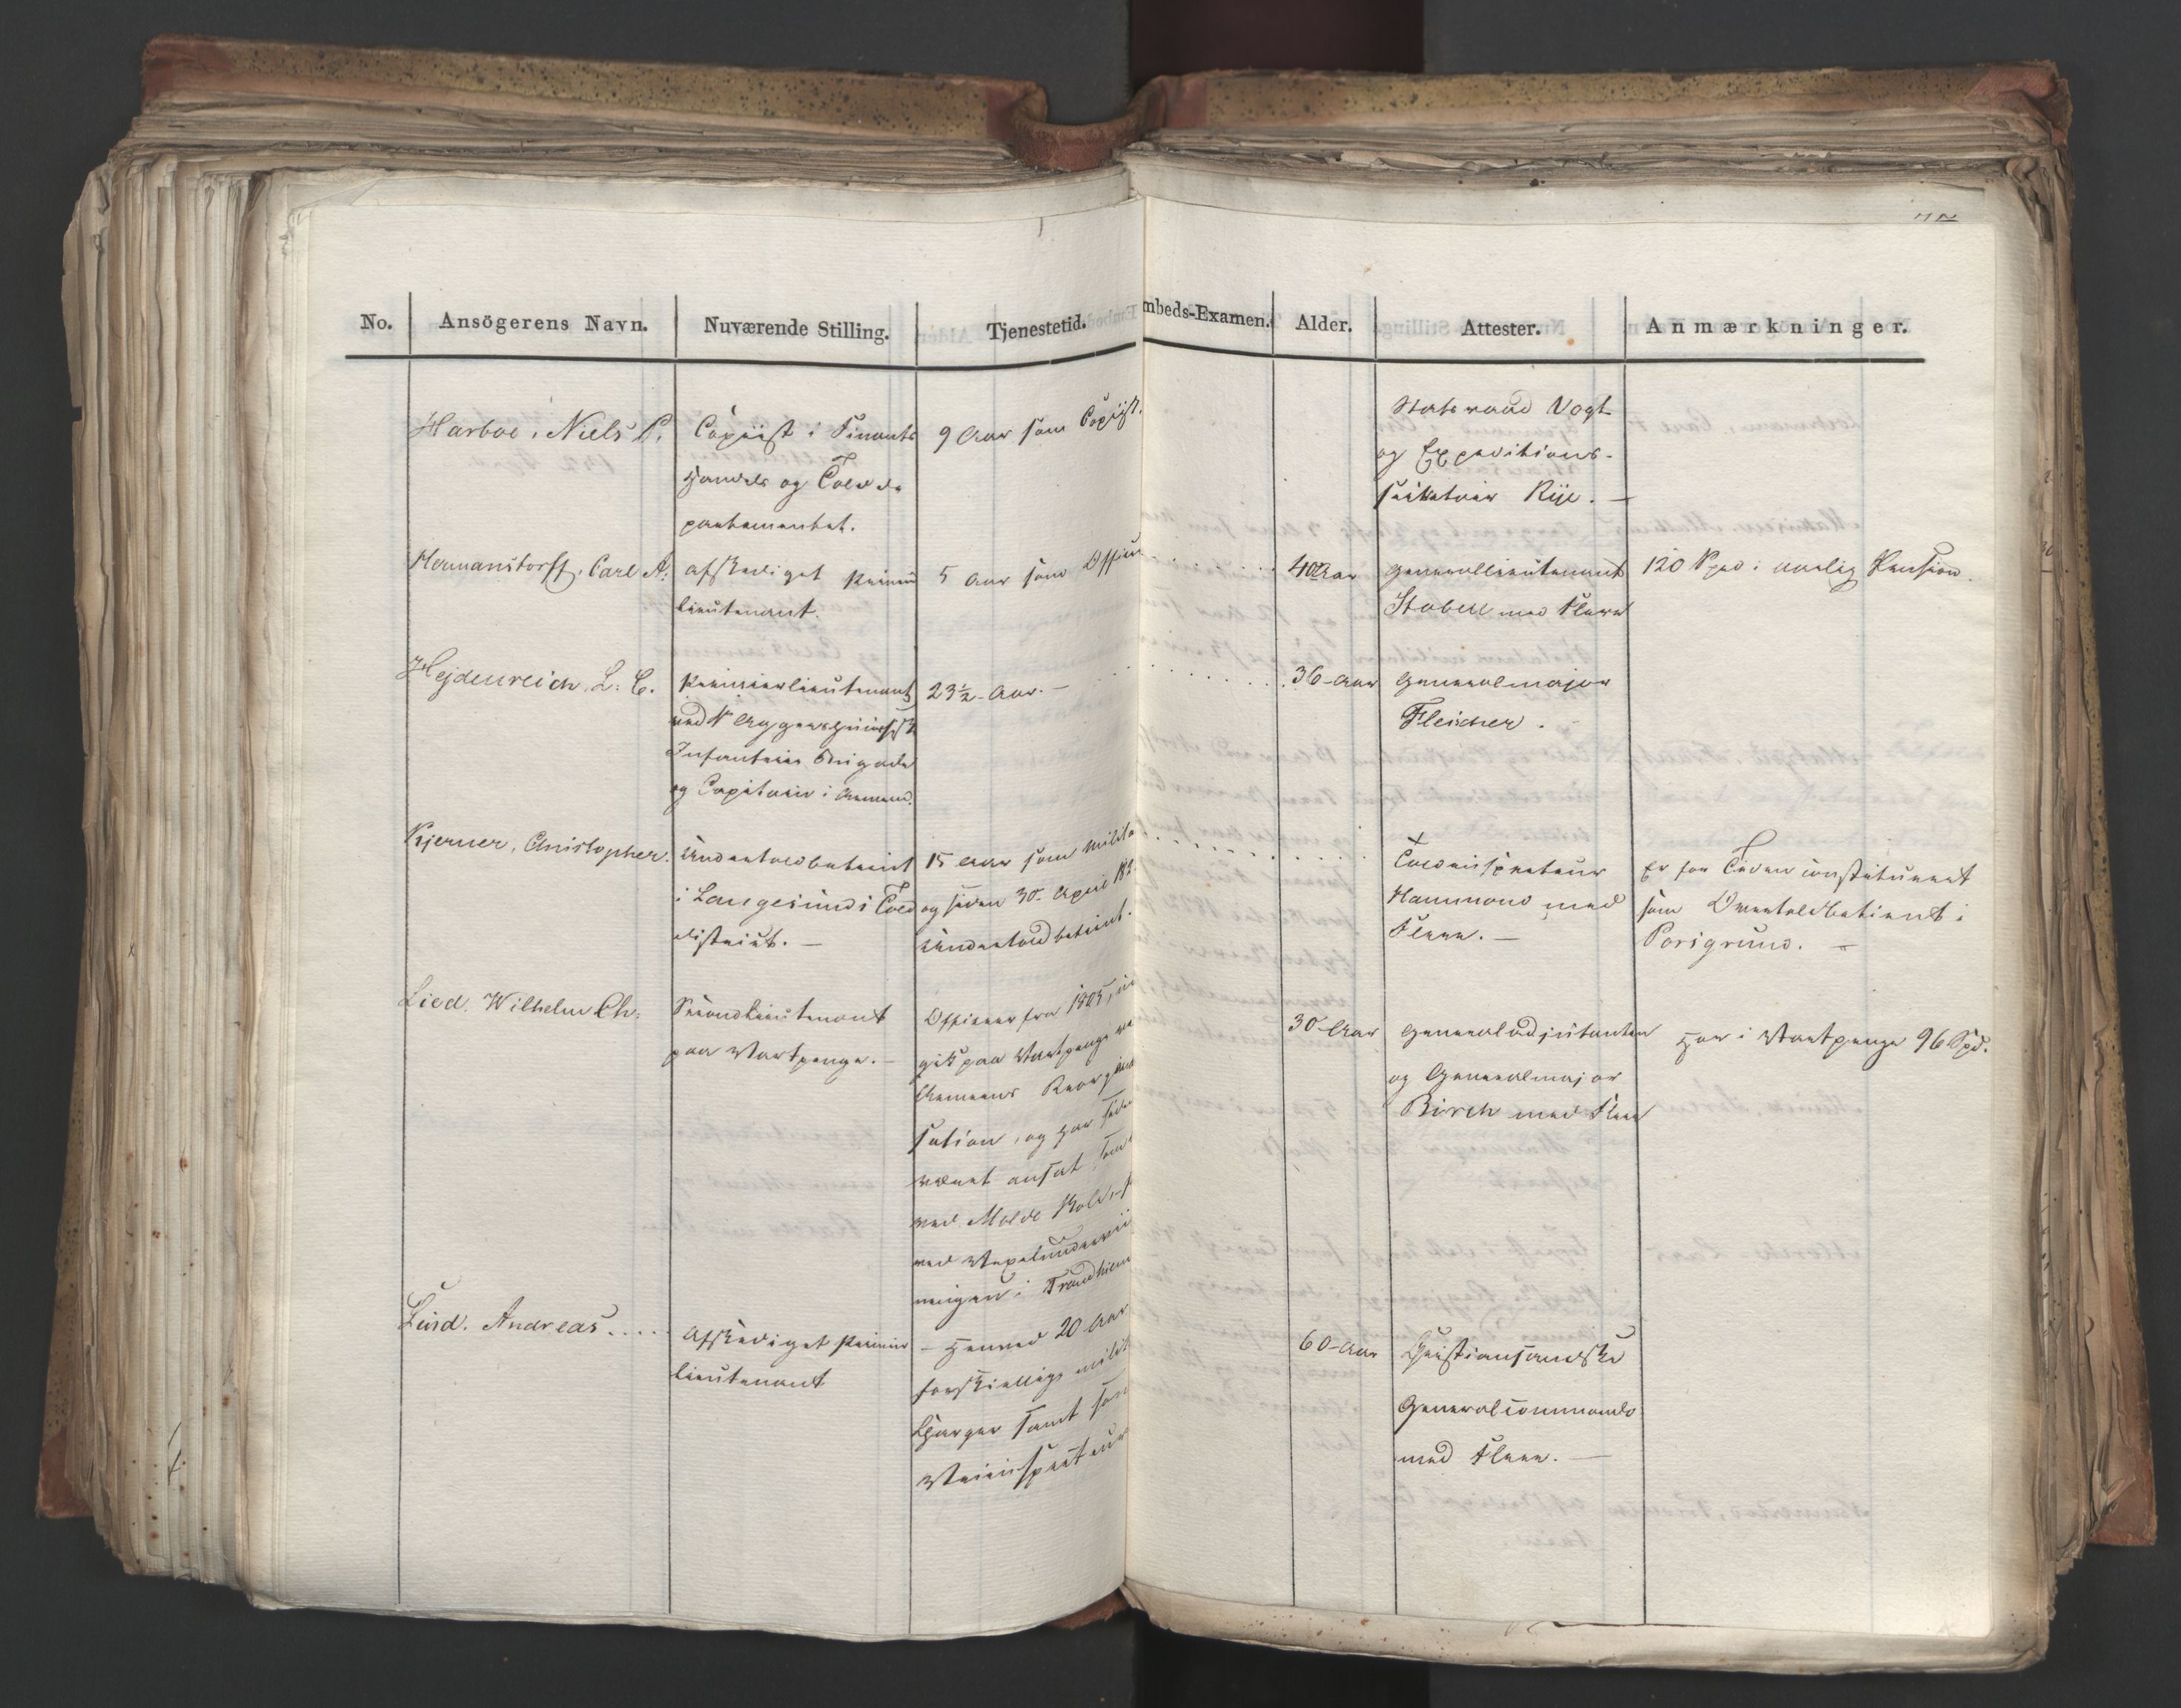 No. Ansögerens Navn. Nuværende Stilling. Tjenestetid. mbeds-Examen. Alder. Attester. Anmærkninger.
Harboe, Niels P.
Copiist i Finants
Handels og Told de
partementet.
9 Aar som Copiist.
Statsraad Vogt
og Expeditions-
secretair Rye. —
Hermanstorff, Carl A:
Afskediget Premier
lieutenant.
5 Aar som Officier
40 Aar
Generallieutenant
Stabell med Flere
120 Spd: aarlig Pension.
Hejdenreich, L: C.
Premierlieutenant
ved Aggershuusiske
Infanterie Brigade
og Capitain i Armeen.
23½ Aar. —
36 Aar
Generalmajor
Fleischer.
Kjerner, Christopher.
Undertoldbetient
i Langesunds Told
district. —
15 Aar som Milita
og siden 30. April 182
Undertoldbetient.
Toldinspecteur
Hammond med
Flere. —
Er for Tiden constitueret
som Overtoldbetient i
Porsgrund. —
Lied, Wilhelm Ch:
Secondlieutenant
paa Vartpenge. —
Officier fra
gik paa Vartpenge ve
Armeens Reorgani
sation, og har siden
været ansat som
ved Molde
ved
ningen i Trondhiem
30 Aar
Generaladjutanten
og Generalmajor
Birch med Flere
Har i Vartpenge 96 Spd.
Lund, Andreas.....
Afskediget Premier
lieutenant
— Henved 20 Aar
forskiellige milit
Charger samt som
Veiinspecteur
60 Aar
Christiansandske
Generalcommando
med Flere. —